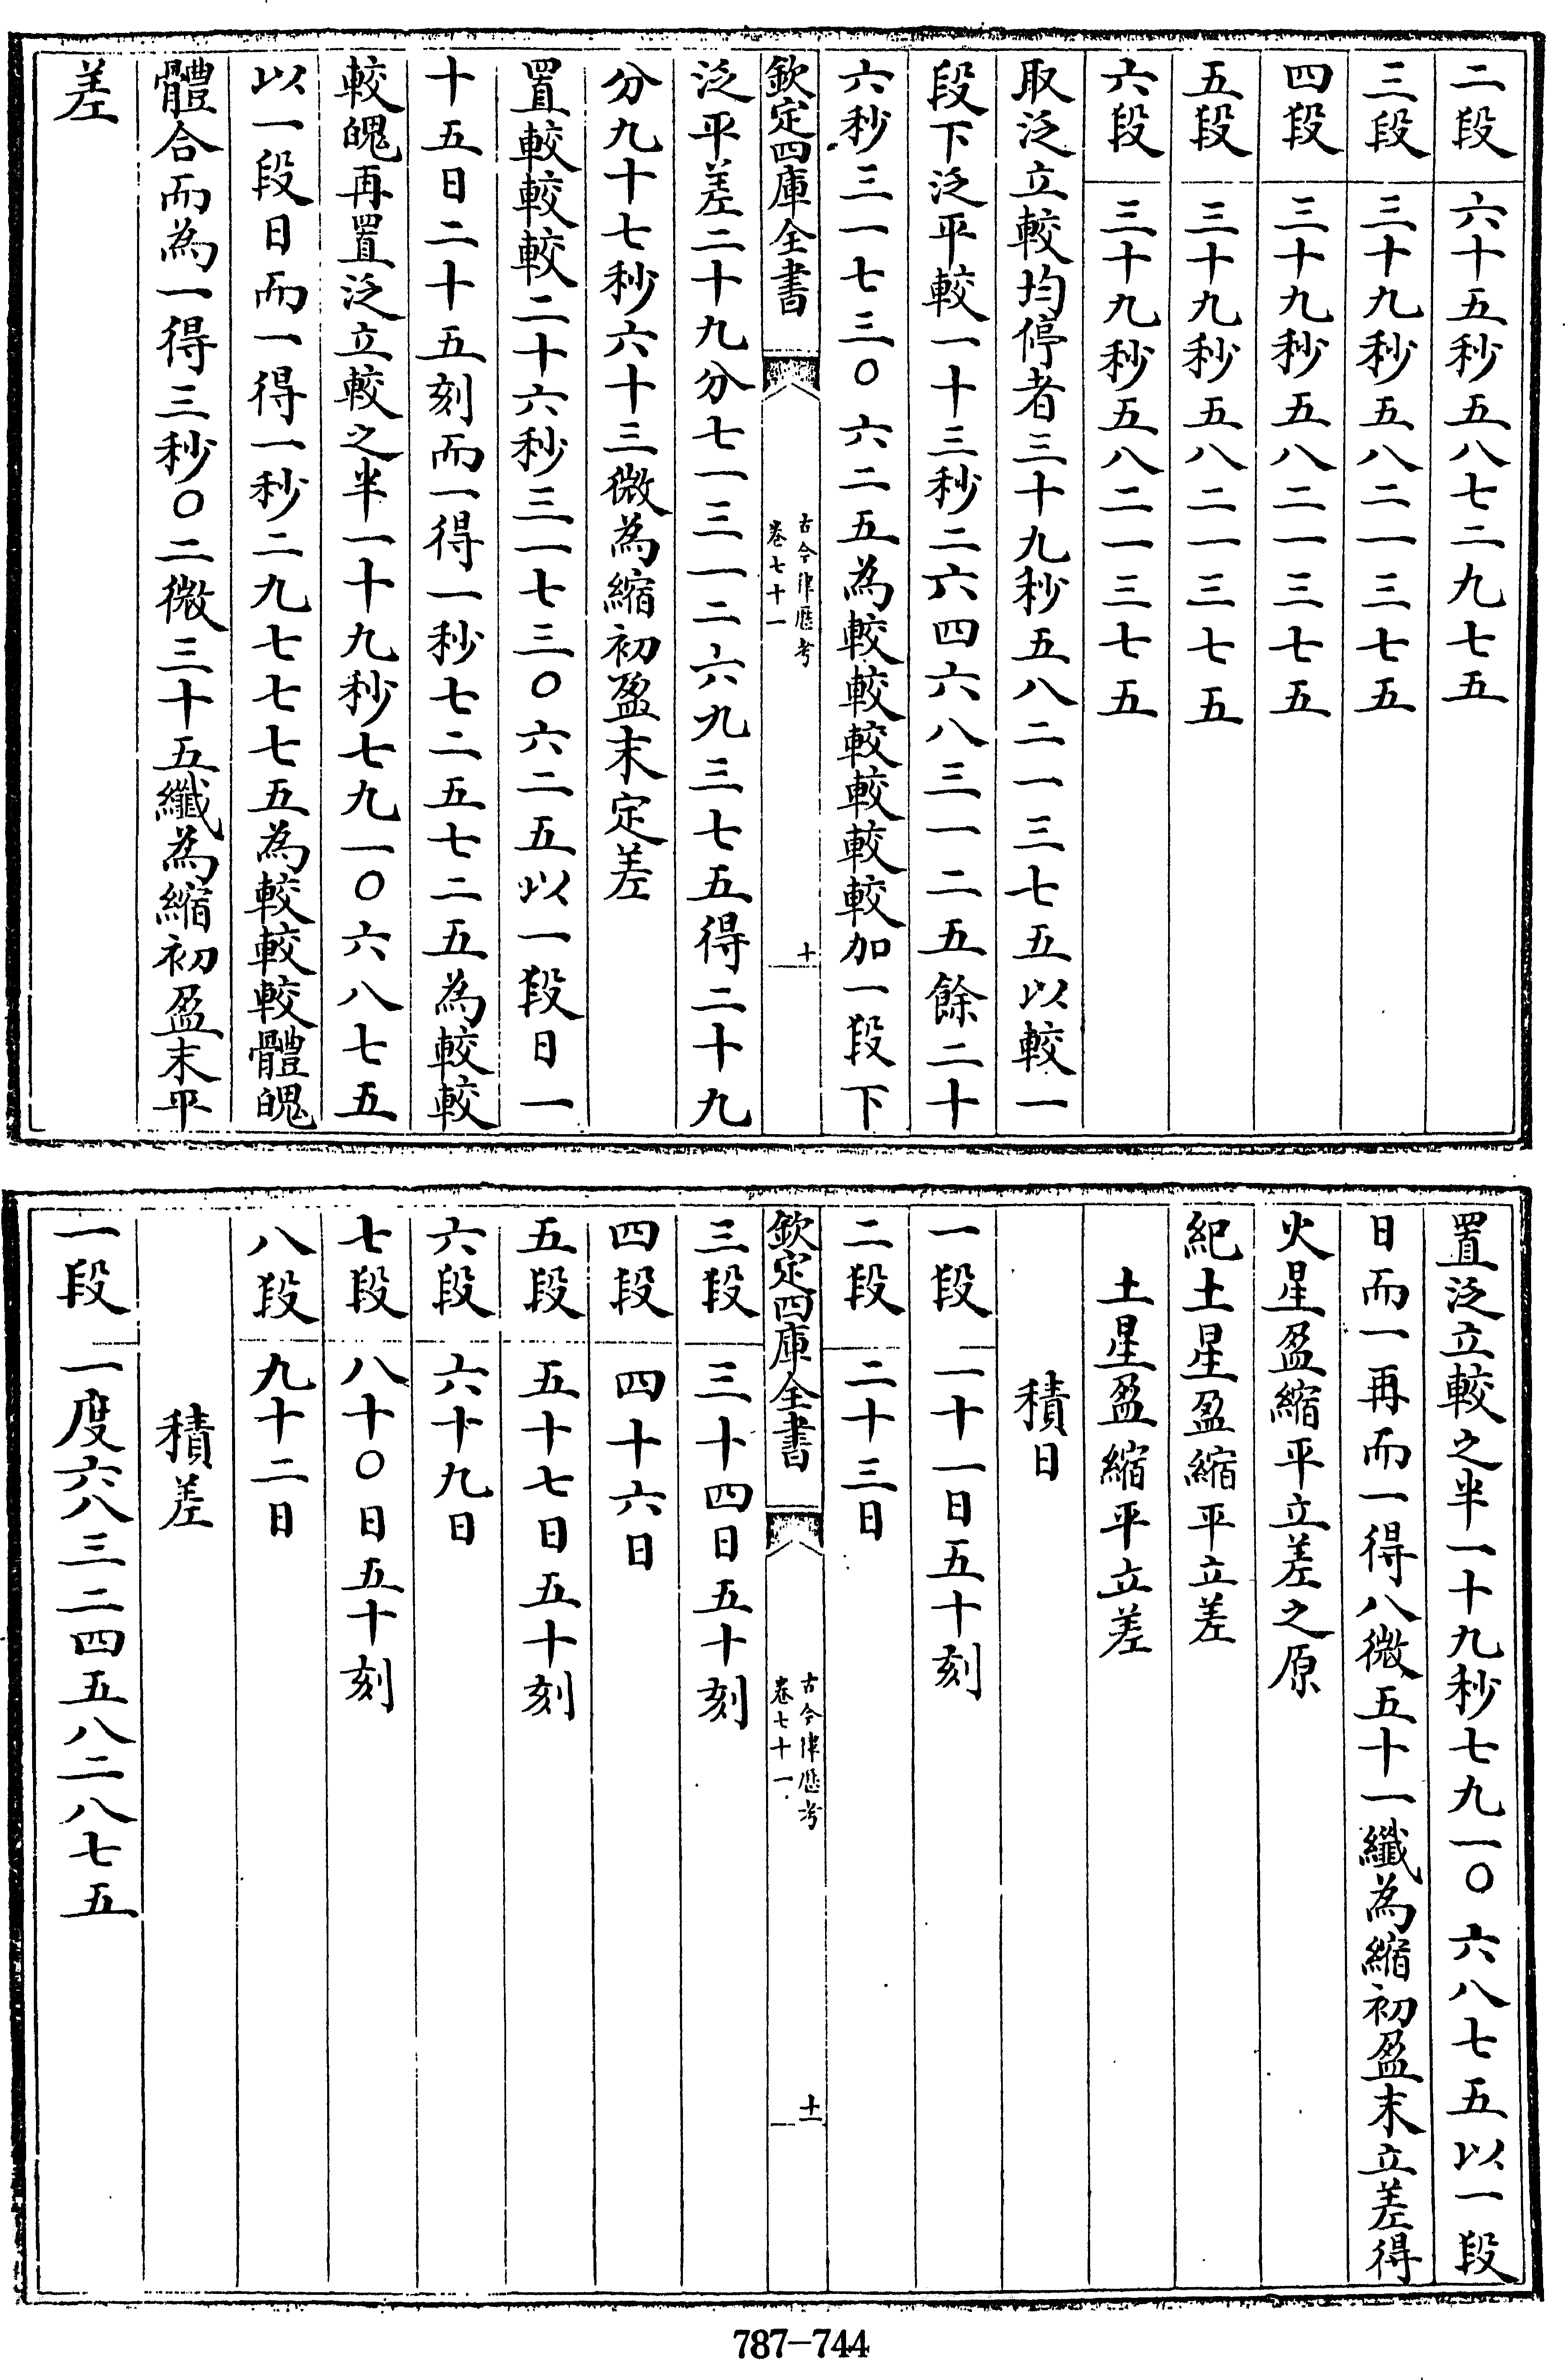 二段　六十五秒五八七二九七五
三段　三十九秒五八二一三七五
四段　三十九秒五八二一三七五
五段　三十九秒五八二一三七五
六段　三十九秒五八二一三七五
取泛立較均停者三十九秒五八二一三七五以較一
段下泛平較一十三秒二六四六八三一二五餘二十
六秒三一七三〇六二五為較較較較較較加一段下
欽定四庫全書
古今律歷考
卷七十一
十
泛平差二十九分七一三一二六九三七五得二十九
分九十七秒六十三微為縮初盈末定差
置較較較二十六秒三一七三〇六二五以一段日一
十五日二十五刻而一得一秒七二五七二五為較較
較䰟再置泛立較之半一十九秒七九一〇六八七五
以一段日而一得一秒二九七七七五為較較較體䰟
體合而為一得三秒〇二微三十五纖為縮初盈末平
差
置泛立較之半一十九秒七九一〇六八七五以一段
日而一再而一得八微五十一纖為縮初盈末立差得
火星盈縮平立差之原
紀土星盈縮平立差
土星盈縮平立差
積日
一段　一十一日五十刻
二段　二十三日
欽定四庫全書
古今律歷考
卷七十一
十一
三段　三十四日五十刻
四段　四十六日
五段　五十七日五十刻
六段　六十九日
七段　八十〇日五十刻
八段　九十二日
積差
一段　一度六八三二四五八二八七五
787-744